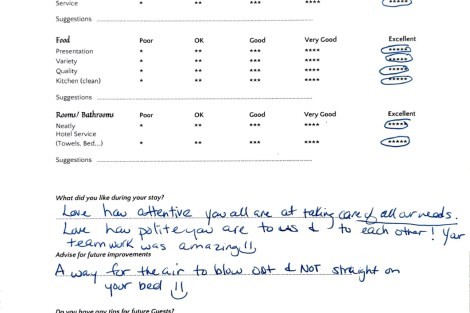 Service * ** *** **** *****
Suggestions
Food Poor OK Good Very Good Excellent
Presentation * ** *** **** *****
Variety * ** *** **** *****
Quality * ** *** **** *****
Kitchen (clean) * ** *** **** *****
Suggestions
Rooms/ Bathrooms Poor OK Good Very Good Excellent
Neatly * ** *** **** *****
Hotel Service
(Towels, Bed...) * ** *** **** *****
Suggestions
What did you like during your stay?
Love how attentive you all are at taking care of all our needs.
Love how polite you are to us & to each other! Your
teamwork was amazing
Advise for future improvements
A way for the air to blow out & NOT straight on
your bed
Do you have any tips for future Guests?